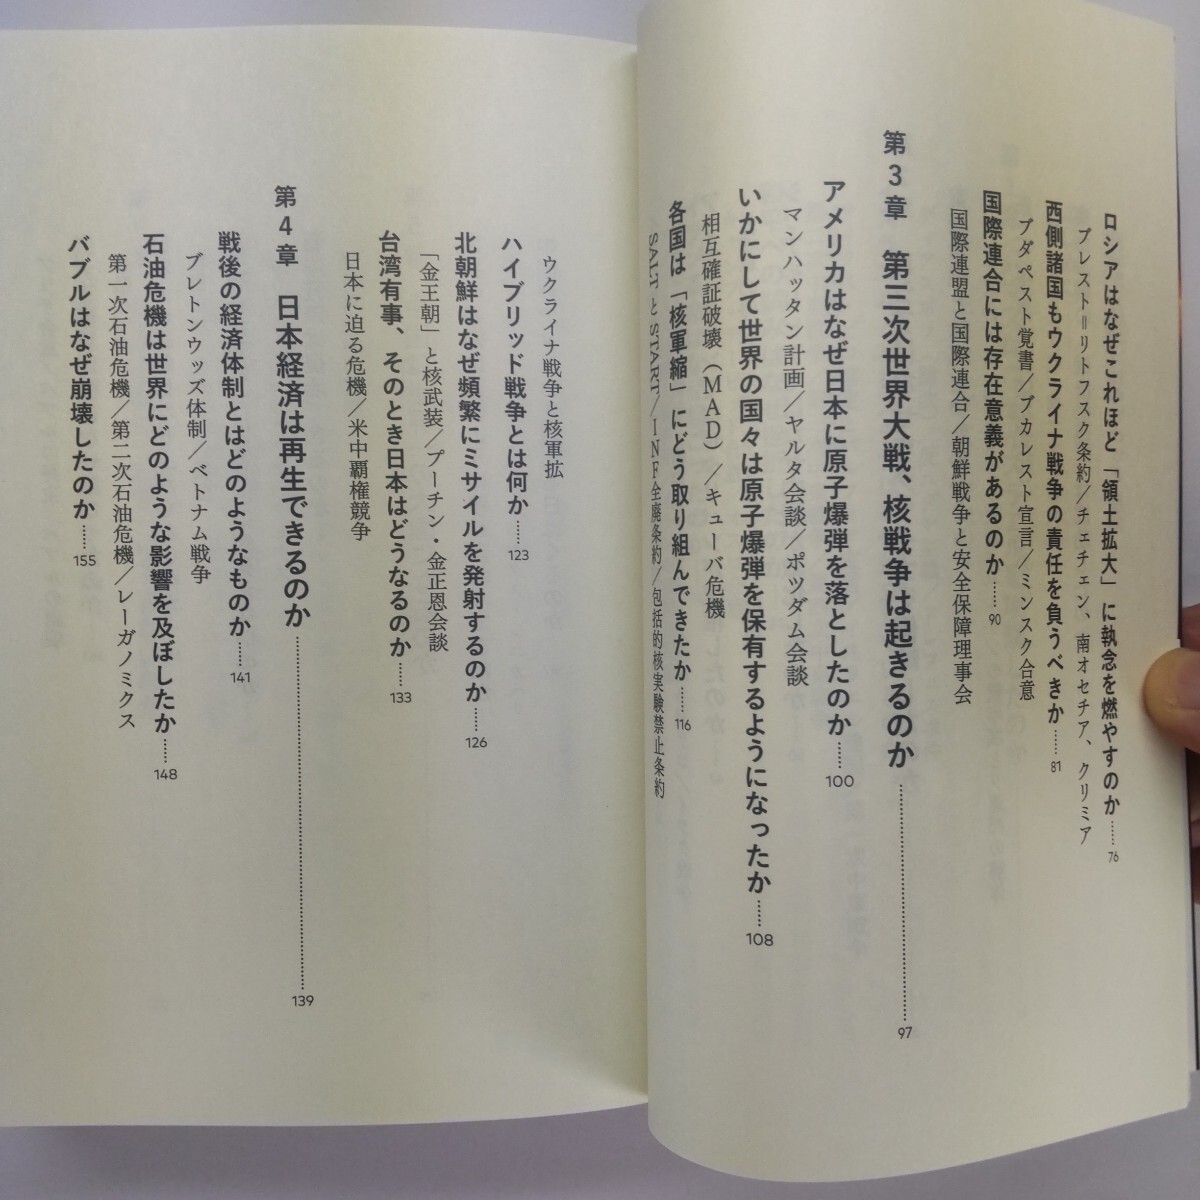 ロシアはなぜこれほど「領土拡大」に執念を燃やすのか……76
ブレスト＝リトフスク条約/チェチェン、南オセチア、クリミア
西側諸国もウクライナ戦争の責任を負うべきか……81
ブダペスト覚書/ブカレスト宣言/ミンスク合意
国際連合には存在意義があるのか……90
国際連盟と国際連合/朝鮮戦争と安全保障理事会
第3章 第三次世界大戦、核戦争は起きるのか……97
アメリカはなぜ日本に原子爆弾を落としたのか……100
マンハッタン計画/ヤルタ会談/ポツダム会談
いかにして世界の国々は原子爆弾を保有するようになったか……108
相互確証破壊(MAD)/キューバ危機
各国は「核軍縮」にどう取り組んできたか……116
SALTとSTART/INF全廃条約/包括的核実験禁止条約
ウクライナ戦争と核軍拡
ハイブリッド戦争とは何か……123
北朝鮮はなぜ頻繁にミサイルを発射するのか……126
「金王朝」と核武装/プーチン・金正恩会談
台湾有事、そのとき日本はどうなるのか……133
日本に迫る危機/米中覇権競争
第4章 日本経済は再生できるのか……139
戦後の経済体制とはどのようなものか……141
ブレトンウッズ体制/ベトナム戦争
石油危機は世界にどのような影響を及ぼしたか……148
第一次石油危機/第二次石油危機/レーガノミクス
バブルはなぜ崩壊したのか……155